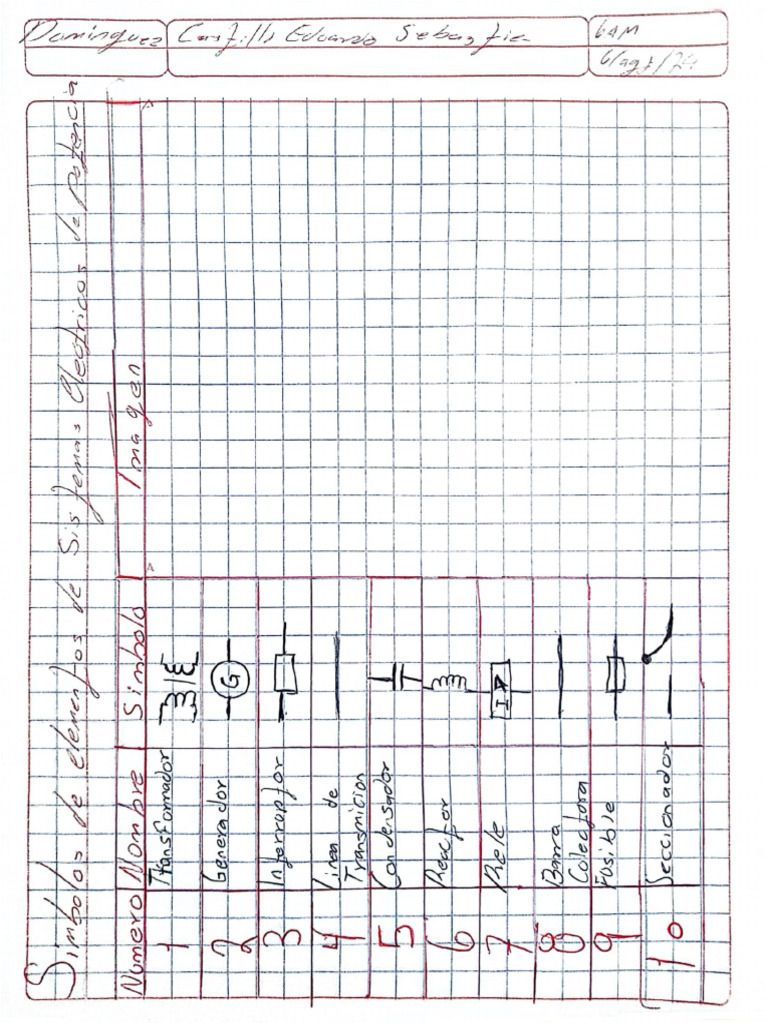 Dominguez Castillo Eduardo Sebastia
6AM
6/ag/24
Simbolos de elementos de Sistemas Electricos de Potencia
Numero Nombre Simbolo Imagen
1 Transformador
2 Generador G
3 Interruptor
4 Linea de
Transmicion
5 Condensador
6 Reactor
7 Rele I
8 Barra
Colectora
9 Fusible
10 Seccionador